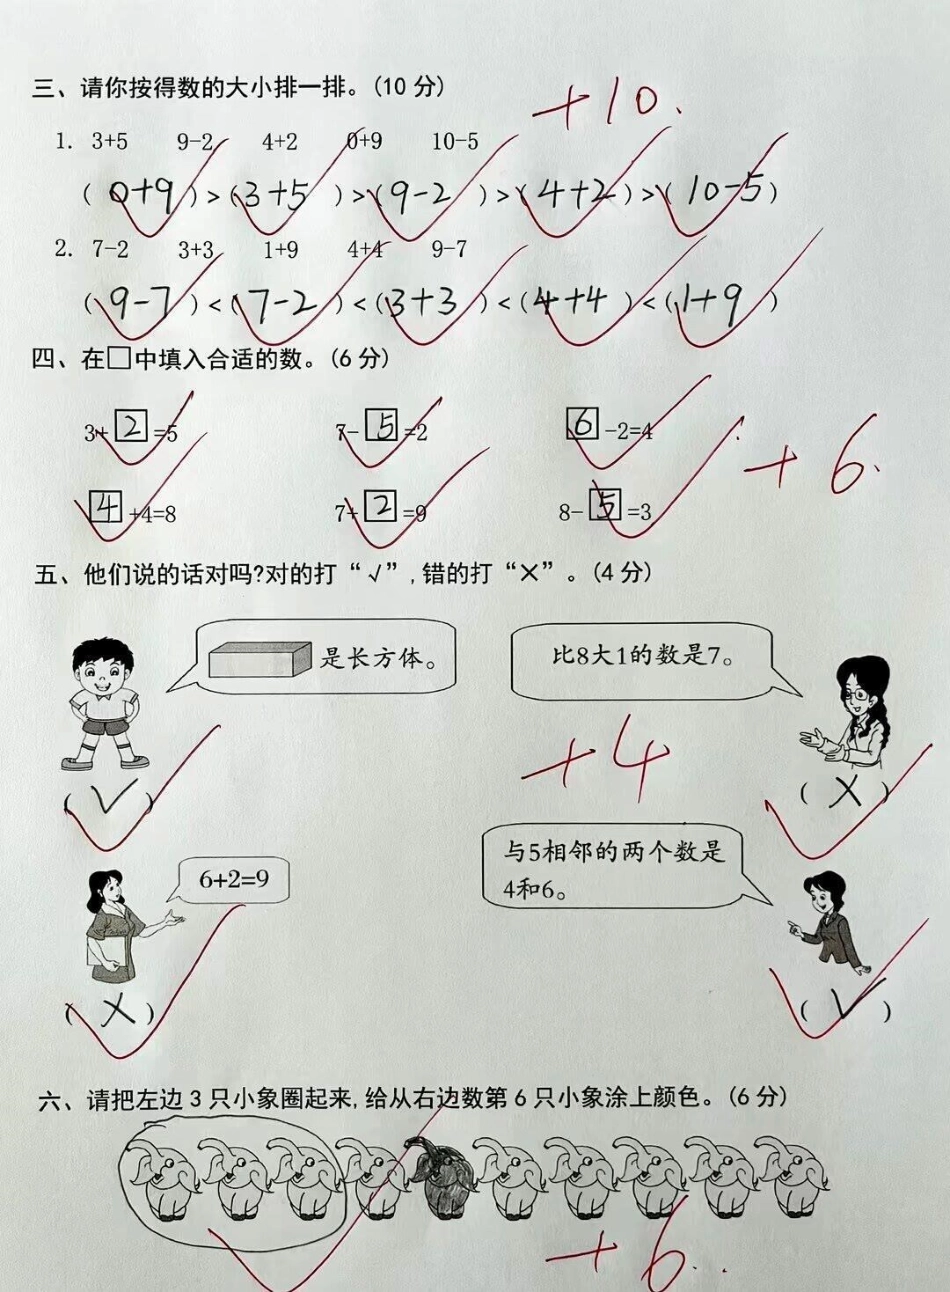 三、请你按得数的大小排一排。(10 分)
+10.
1. 3+5 9-2 4+2 0+9 10-5
(0+9)>(3+5)>(9-2)>(4+2)>(10-5)
2. 7-2 3+3 1+9 4+4 9-7
(9-7)<(7-2)<(3+3)<(4+4)<(1+9)
四、在□中填入合适的数。(6 分)
3+2=5 7-5=2 6-2=4
+6.
4+4=8 7+2=9 8-5=3
五、他们说的话对吗?对的打“√”,错的打“×”。(4 分)
是长方体。 比8大1的数是7。
+4
(√) (×)
6+2=9
与5相邻的两个数是
4和6。
(×) (√)
六、请把左边 3 只小象圈起来,给从右边数第 6 只小象涂上颜色。(6 分)
+6.